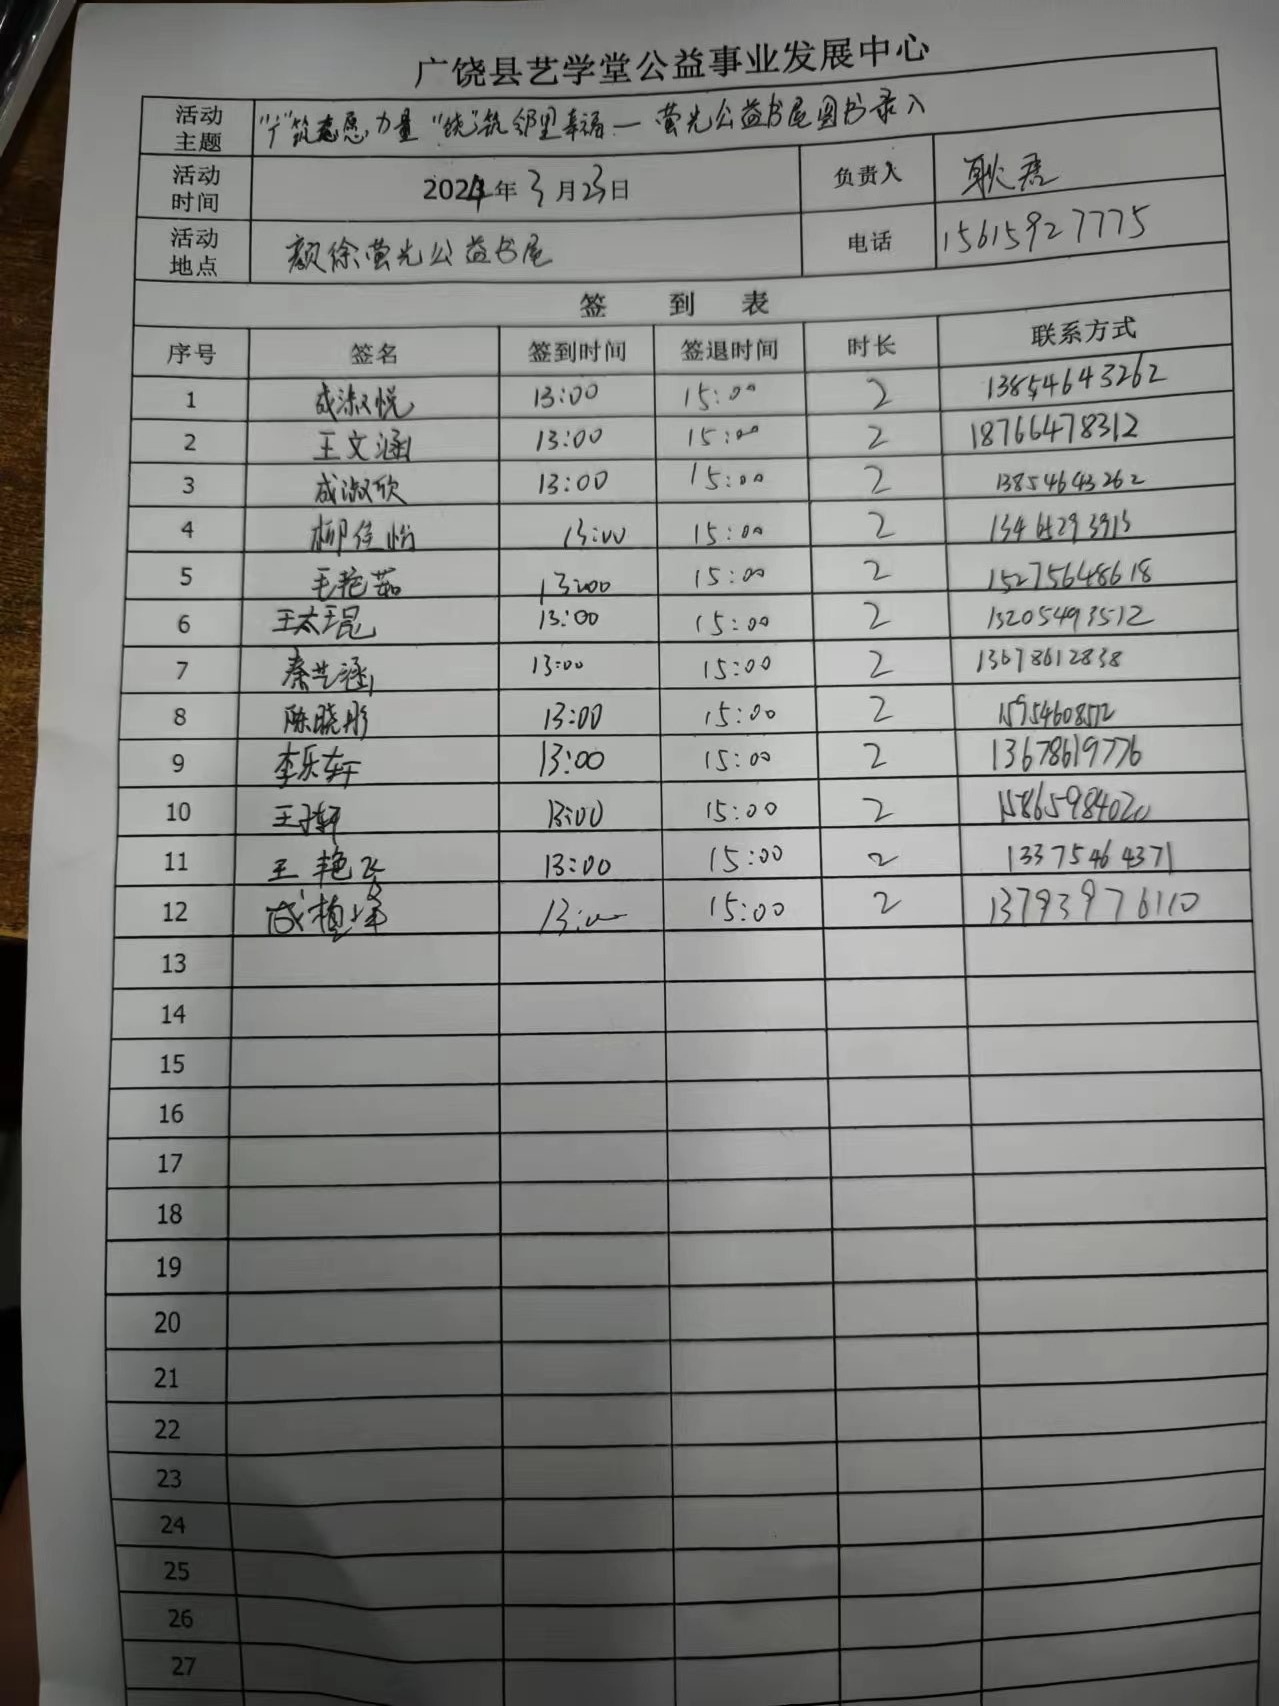 广饶县艺学堂公益事业发展中心
活动主题 "广"筑志愿力量 "饶"筑邻里幸福—萤光公益书屋图书录入
活动时间 2024年3月23日 负责人 耿君
活动地点 颜徐萤光公益书屋 电话 15615927775
签 到 表
序号 签名 签到时间 签退时间 时长 联系方式
1 成淑悦 13:00 15:00 2 13854643262
2 王文涵 13:00 15:00 2 18766478312
3 成淑欣 13:00 15:00 2 13854643262
4 柳佳怡 13:00 15:00 2
5 毛艳茹 13:00 15:00 2 15275648618
6 王太琨 13:00 15:00 2 13205493512
7 秦艺涵 13:00 15:00 2 13678612838
8 陈晓彤 13:00 15:00 2
9 李乐轩 13:00 15:00 2 13678619776
10 13:00 15:00 2 15865984020
11 王艳飞 13:00 15:00 2 13375464371
12 13:00 15:00 2 13793976110
13
14
15
16
17
18
19
20
21
22
23
24
25
26
27